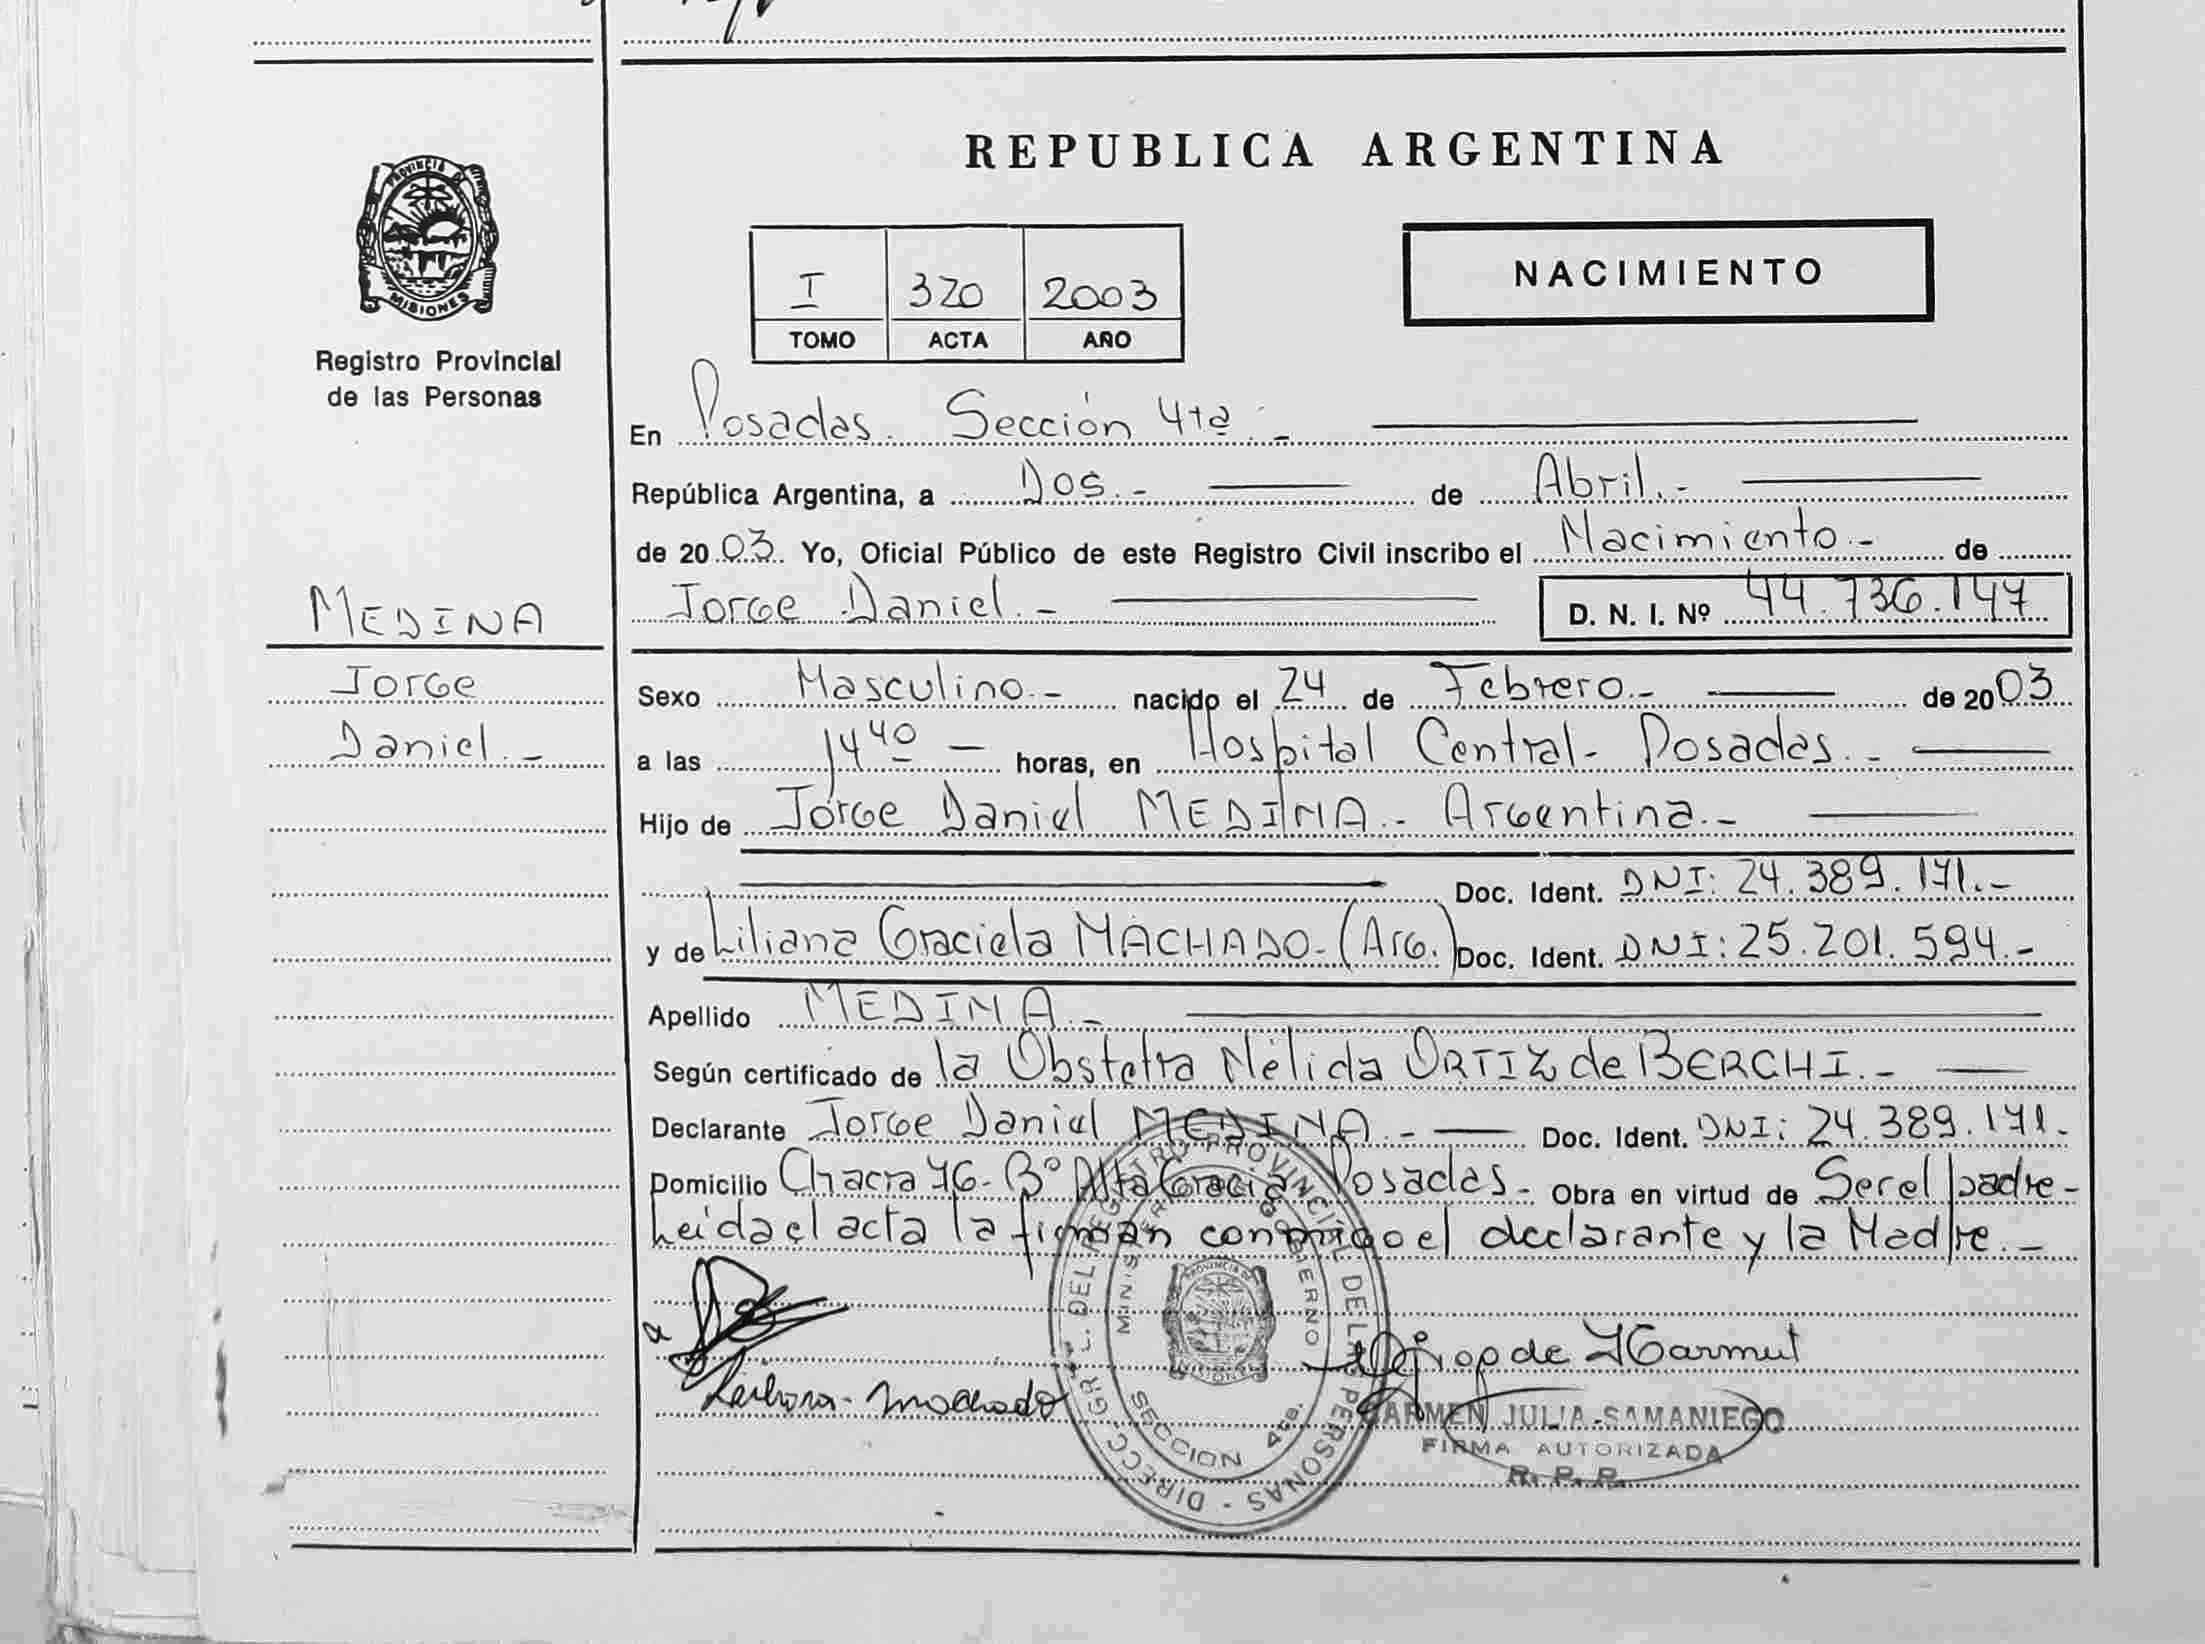 REPUBLICA ARGENTINA
PROVINCIA DE
MISIONES
Registro Provincial
de las Personas
I 320 2003
TOMO ACTA AÑO
NACIMIENTO
En Posadas. Sección 4ta.-
República Argentina, a Dos.- de Abril.-
de 2003. Yo, Oficial Público de este Registro Civil inscribo el Nacimiento.- de
Jorge Daniel.- D. N. I. Nº 44.736.147
MEDINA
Jorge
Daniel.-
Sexo Masculino.- nacido el 24 de Febrero.- de 2003
a las 14 40 horas, en Hospital Central- Posadas.-
Hijo de Jorge Daniel MEDINA.- Argentina.-
Doc. Ident. DNI: 24.389.171.-
y de Liliana Graciela MACHADO-(Arg.) Doc. Ident. DNI: 25.201.594.-
Apellido MEDINA.-
Según certificado de la Obstetra Nélida ORTIZ de BERCHI.-
Declarante Jorge Daniel MEDINA.- Doc. Ident. DNI: 24.389.171.-
Domicilio Chacra 76- Bº Alta Gracia Posadas.- Obra en virtud de Ser el padre-
Leida el acta la firman conmigo el declarante y la Madre.-
DIRECC. GRAL. DEL REGISTRO PROVINCIAL DE LAS PERSONAS -
MINISTERIO GOBIERNO
PROVINCIA DE
MISIONES
SECCION 4ta.
Machado
CARMEN JULIA SAMANIEGO
FIRMA AUTORIZADA
R. P. P.